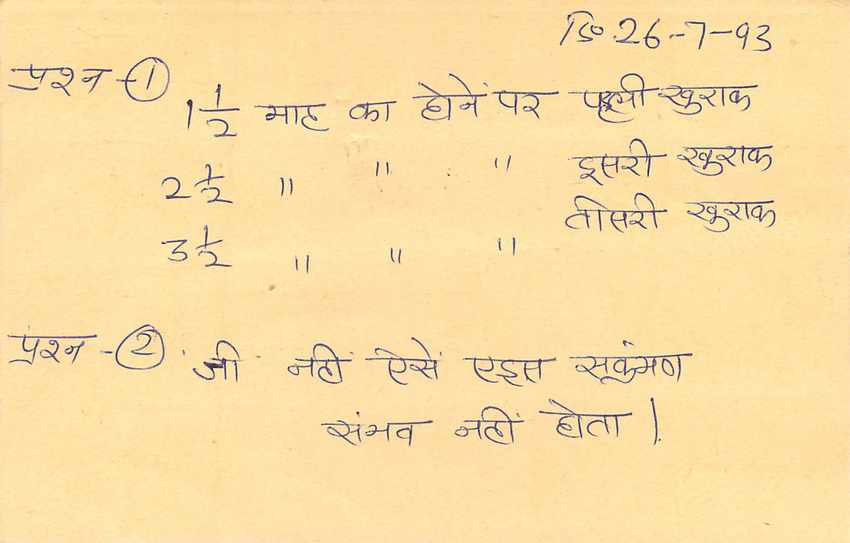 दि० 26-7-93
प्रश्न -① 1 1/2 माह का होनें पर पहली खुराक
2 1/2 " " " दूसरी खुराक
3 1/2 " " " तीसरी खुराक
प्रश्न -② जी नहीं ऐसें एड्स सक्रंमण
संभव नहीं होता।